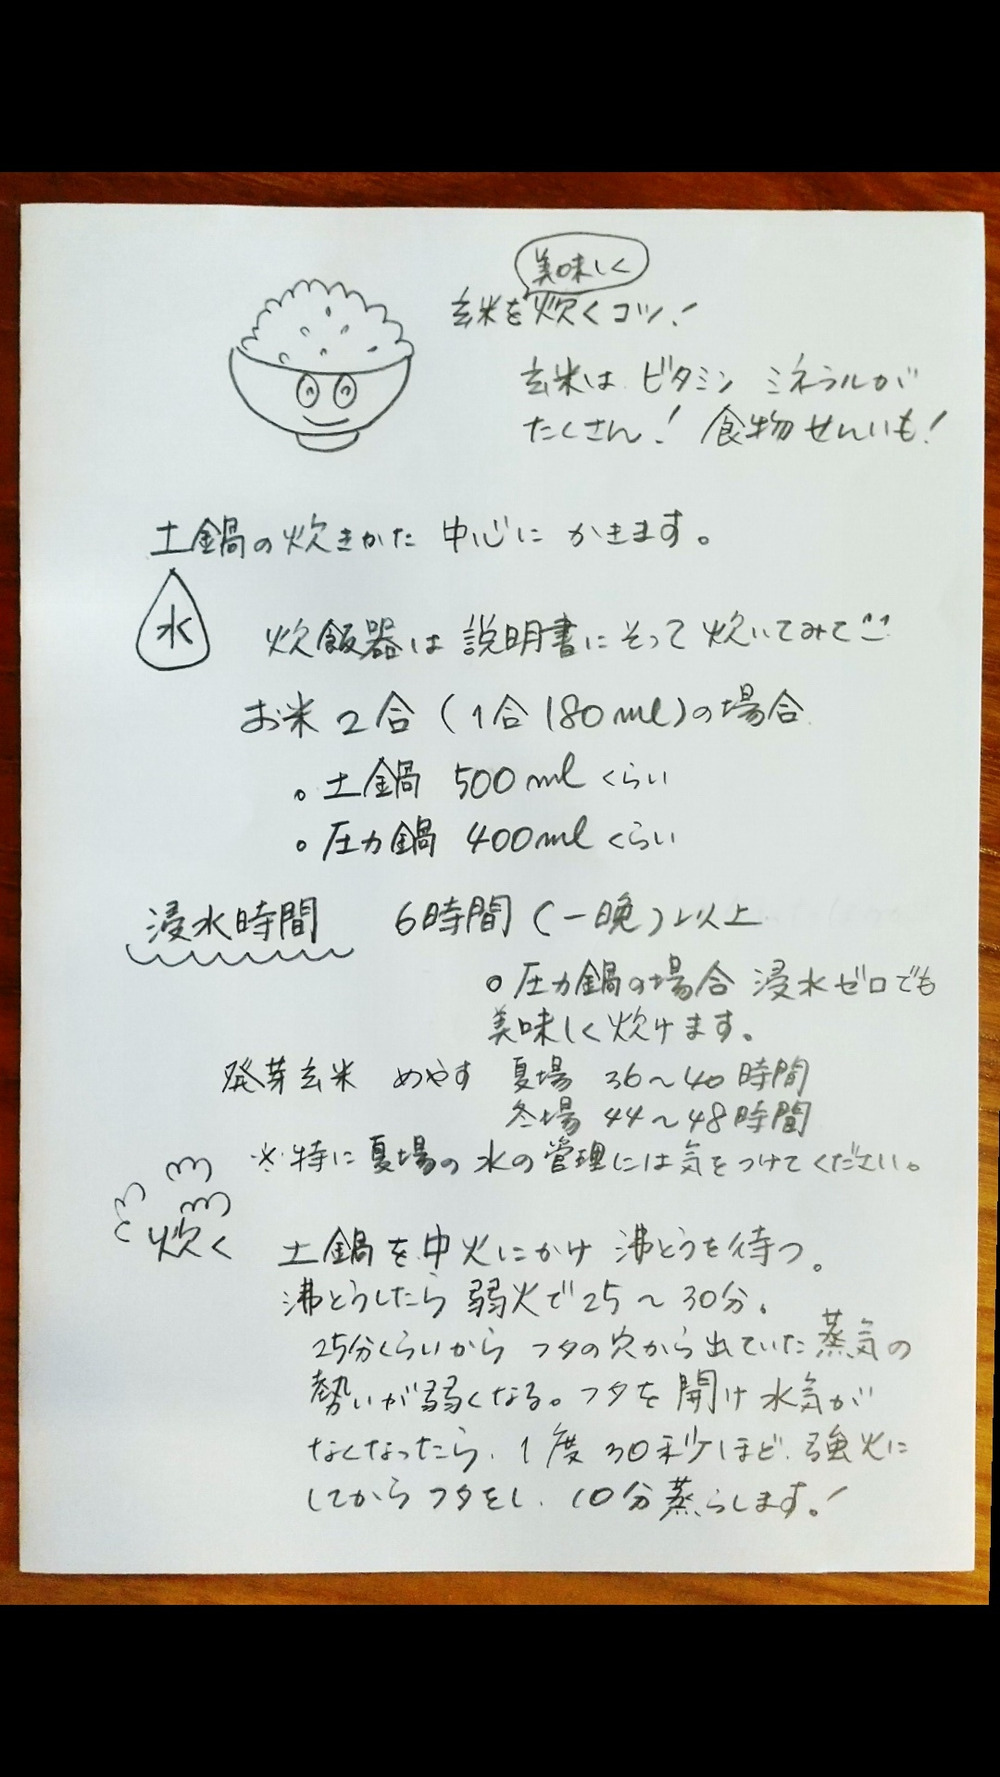 美味しく
玄米を炊くコツ!
玄米は ビタミン ミネラルが
たくさん! 食物せんいも!
土鍋の炊きかた 中心に かきます。
水
炊飯器は 説明書にそって 炊いてみて
お米 2合 (1合 180ml)の場合
。土鍋 500ml くらい
。圧力鍋 400ml くらい
浸水時間 6時間 (一晩) 以上
。圧力鍋の場合 浸水ゼロでも
美味しく炊けます。
発芽玄米 めやす 夏場 36〜40時間
冬場 44〜48時間
※特に夏場の水の管理には気をつけてください。
炊く
土鍋を中火にかけ 沸とうを待つ。
沸とうしたら 弱火で25〜30分。
25分くらいから フタの穴から出ていた蒸気の
勢いが弱くなる。フタを開け水気が
なくなったら、1度30秒ほど、強火に
してからフタをし、10分蒸らします!